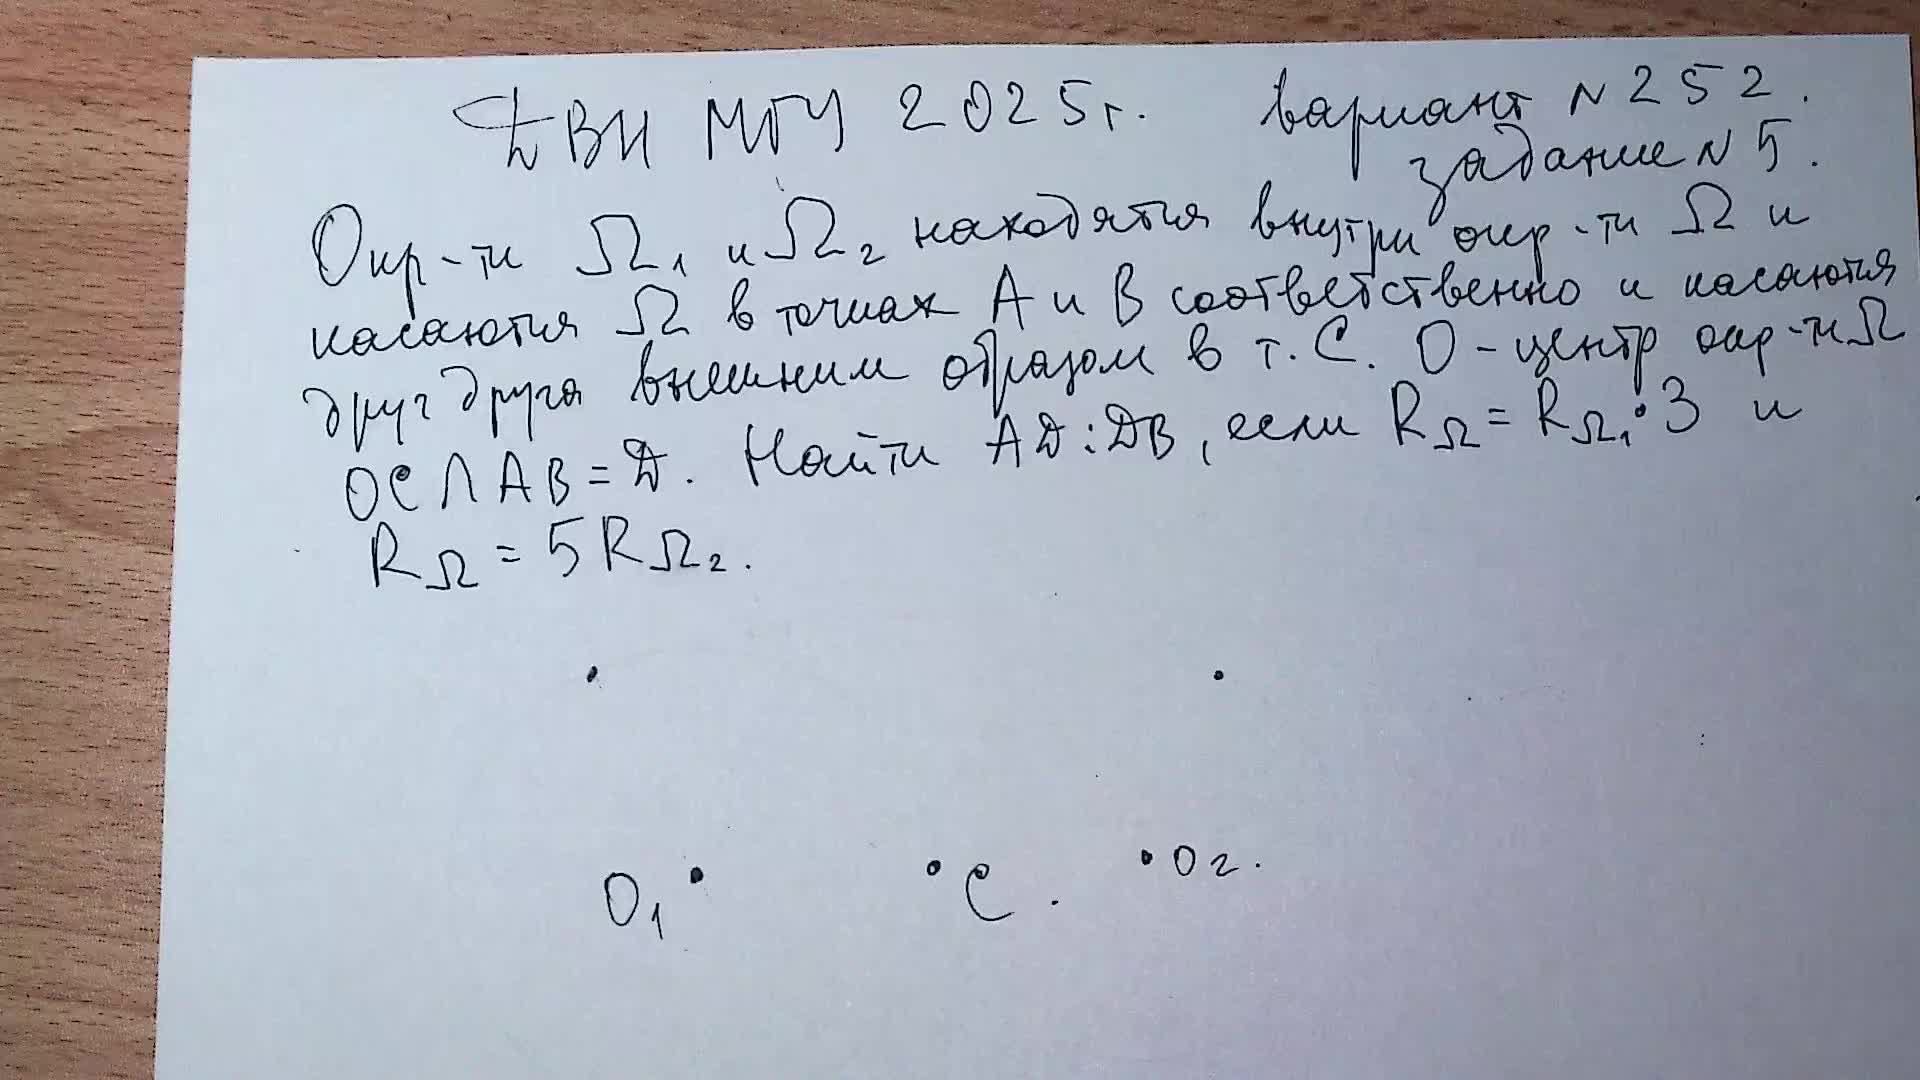 ДВИ МГУ 2025г. вариант N252.
задание N5.
Окр-ти Ω₁ и Ω₂ находятся внутри окр-ти Ω и
касаются Ω в точках A и B соответственно и касаются
друг друга внешним образом в т. C. O - центр окр-ти Ω
OC ∩ AB = D. Найти AD : DB, если R_Ω = R_Ω₁ · 3 и
R_Ω = 5R_Ω₂.
O₁ C. O₂.